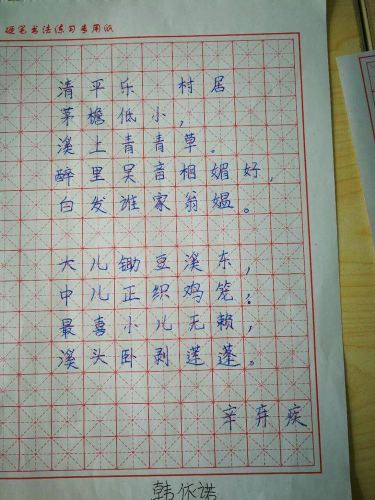 硬笔书法练习专用纸
清平乐 村居
茅檐低小，
溪上青青草。
醉里吴音相媚好，
白发谁家翁媪。
大儿锄豆溪东，
中儿正织鸡笼；
最喜小儿无赖，
溪头卧剥莲蓬。
辛弃疾
韩依诺